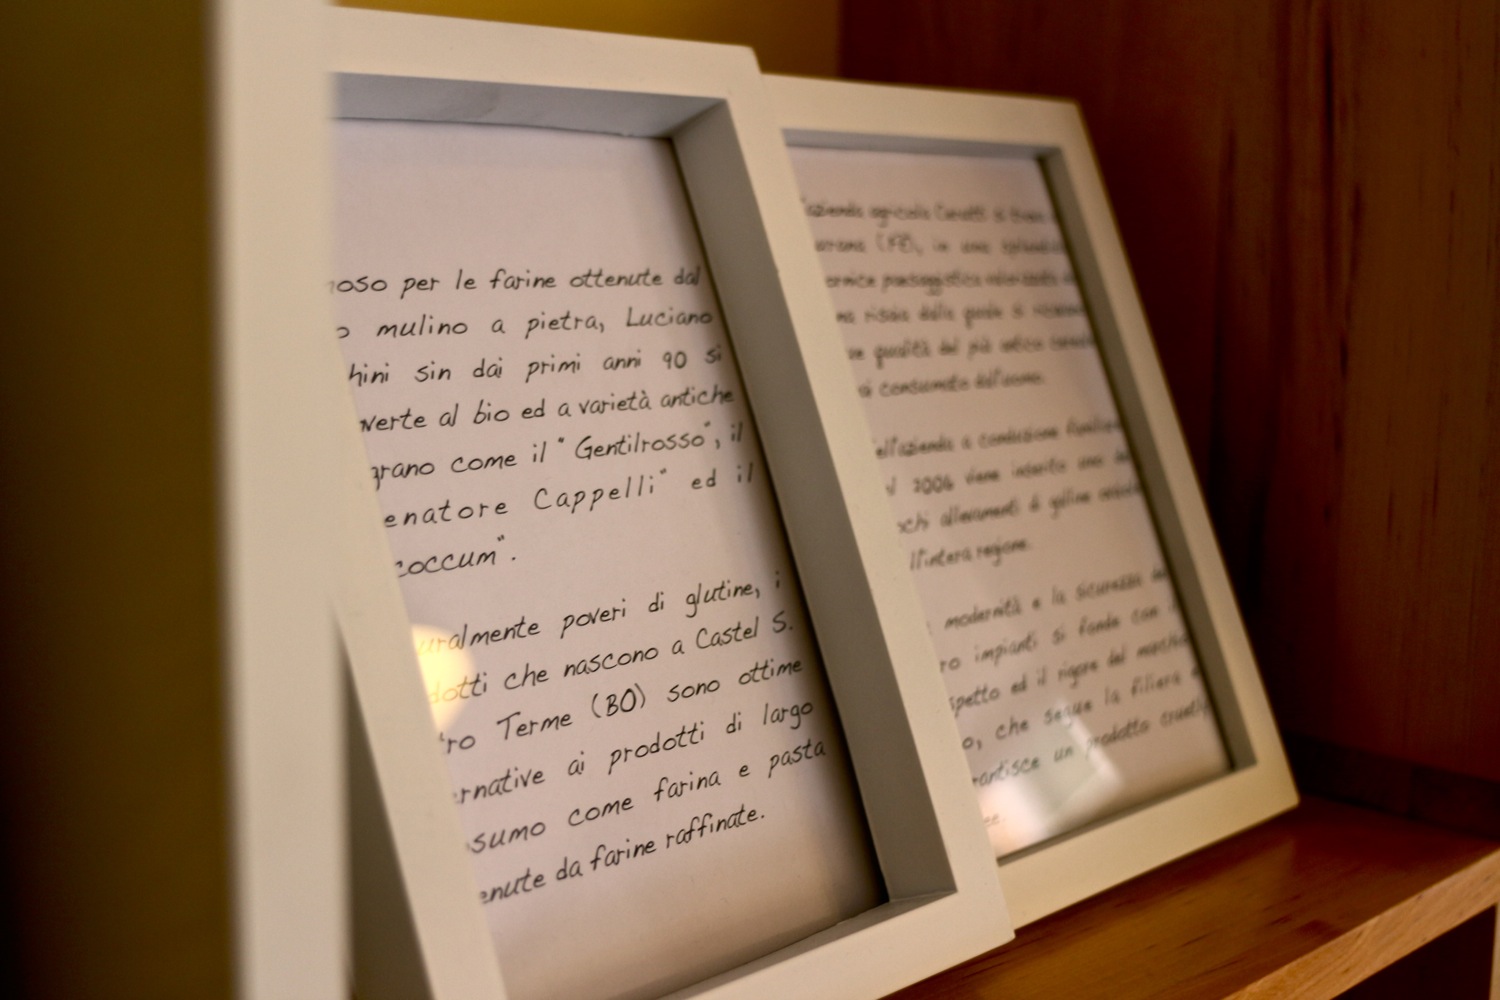 oso per le farine ottenute dal
o mulino a pietra, Luciano
hini sin dai primi anni 90 si
verte al bio ed a varietà antiche
grano come il "Gentilrosso", il
enatore Cappelli" ed il
coccum".
uralmente poveri di glutine, i
dotti che nascono a Castel S.
ro Terme (BO) sono ottime
rnative ai prodotti di largo
sumo come farina e pasta
enute da farine raffinate.
azienda agricola si trova
(FE), in una
ornice paesaggistica valorizzata
risaia dalla quale si
qualità del più antico
consumato dall'uomo.
ell'azienda a conduzione
2006 viene inserito uno
chi allevamenti di galline
ll'intera regione.
modernità e la sicurezza
ro impianti si fonde con
spetto ed il rigore del
o, che segue la filiera e
rantisce un prodotto